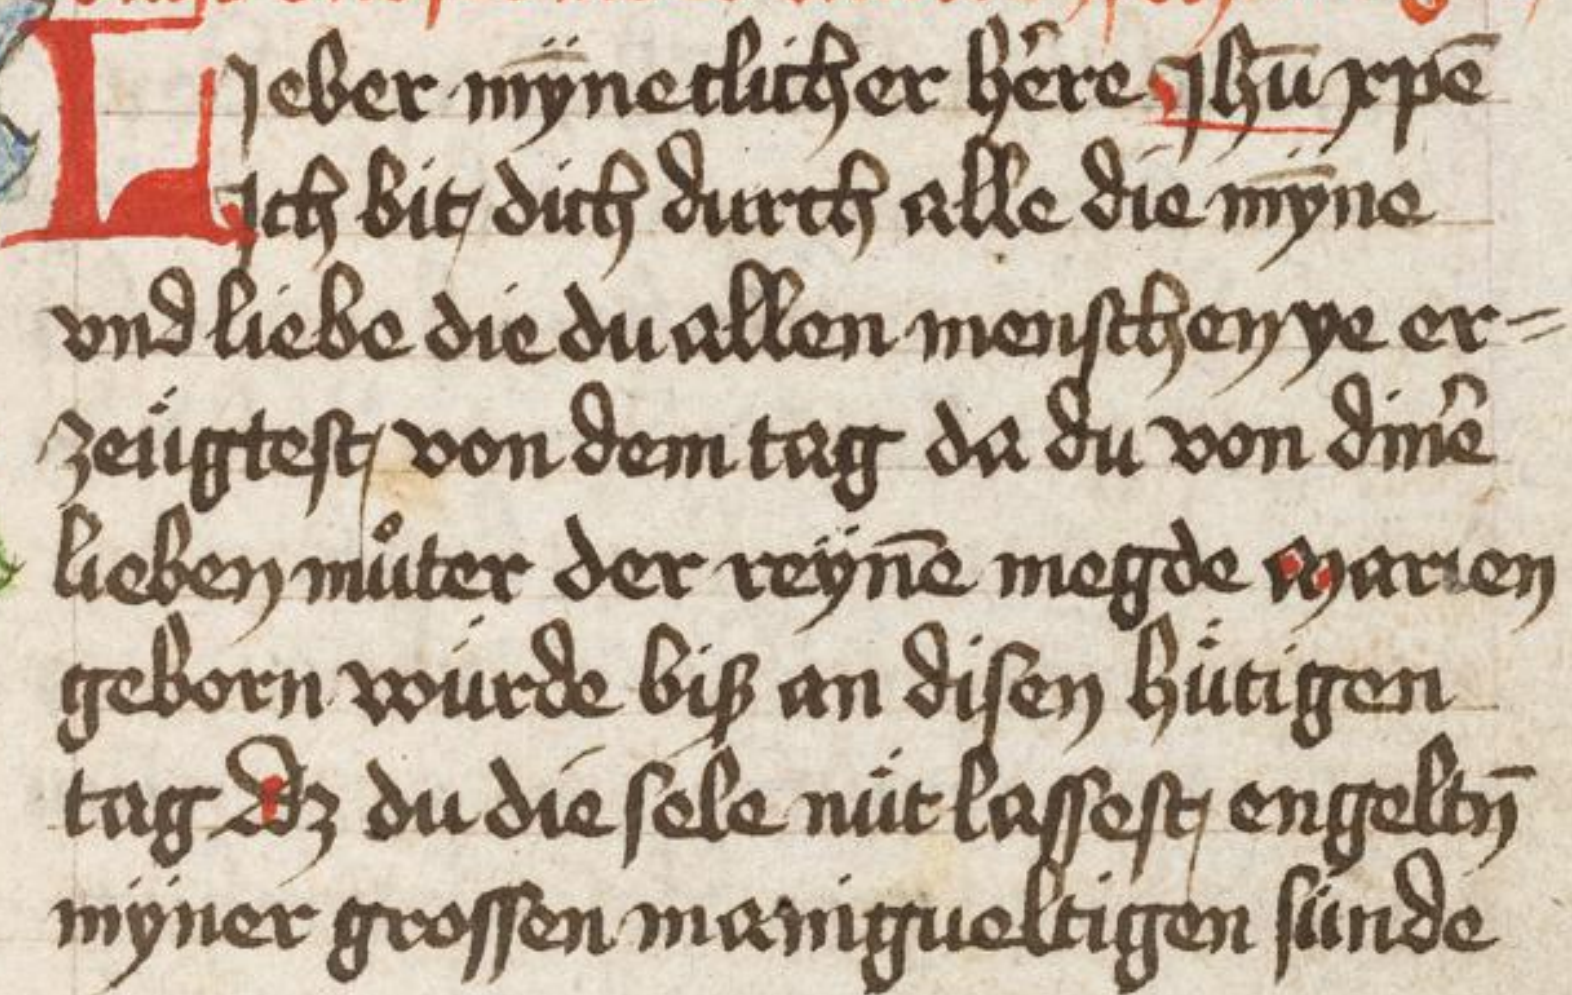 LJeber mÿnetlicher h̕ere Jhū xpē
Jch bit dich durch alle die mÿne
vnd liebe die du allen menschen ye er=
zeu̇gtest von dem tag da du von din̕e
lieben mu̇ter der reÿn̄e megde Marien
geborn wúrde biß an disen hu̇tigen
tag Dz du die sele nu̇t lassest engeltn̄
mÿner grossen manigueltigen sünde